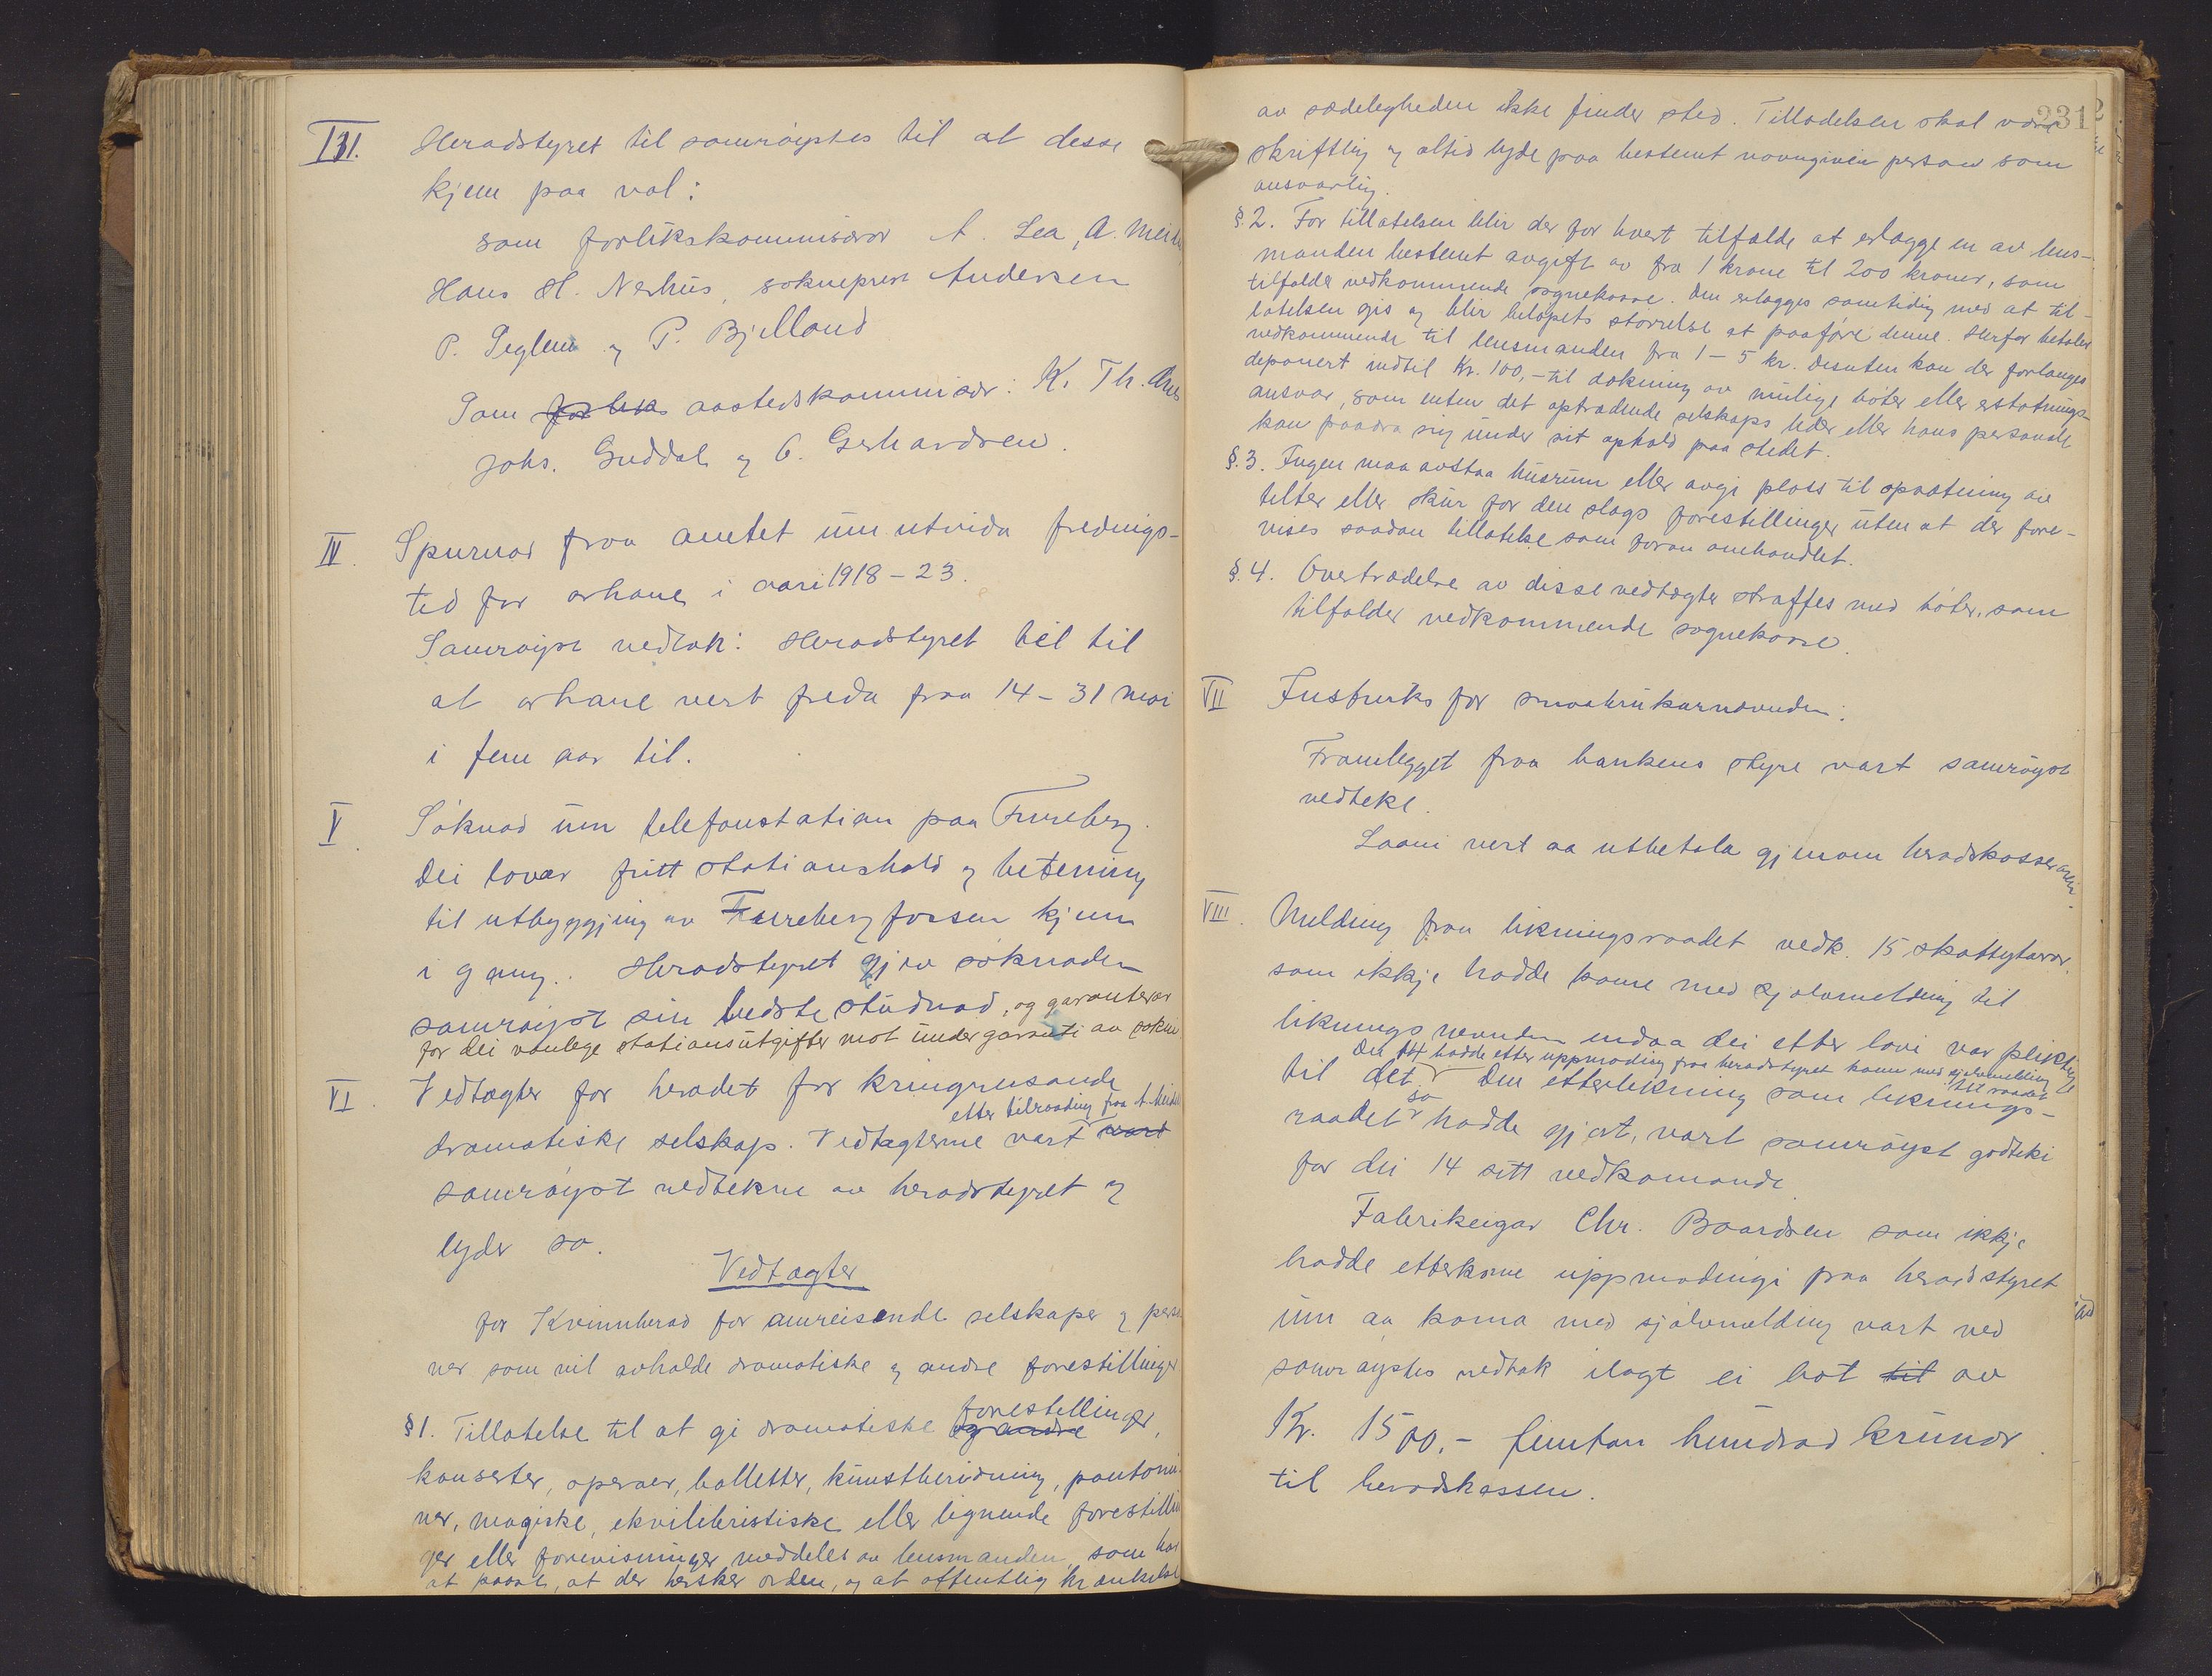 III. Heradstyret til samrøystes til at desse
kjem paa val:
som forlikskommisærar A. Lea, A.
Hans H. Nerhus, sokneprest Andersen
P. Teglem og P. Bjelland
Som forliks aastedskommisær: K. Th.
Johs. Guddal og O. Gerhardsen.
IV. Spurnad fraa amtet um utvida frednings-
tid for orhane i aari 1918-23.
Samrøyst vedtak: Heradstyret til
at orhane vert freda fraa 14-31 mai
i fem aar til.
V. Søknad um telefonstation paa Fureberg.
Dei lovar fritt stationshald og betening
til utbyggjing av Furebergfossen kjem
i gang. Heradstyret gjev søknaden
samrøyst sin bedste studnad, og garanterar
for dei vanlege stationsutgifter mot undergaranti av
VI. Vedtægter for heradet for kringreisande
dramatiske selskap. Vedtægterne vart etter tilraading fraa A. vart
samrøyst vedtekne av heradstyret og
lyder so.
Vedtægter
for Kvinnherad for omreisende selskaper og perso
ner som vil avholde dramatiske og andre forestillinger
§1. Tillatelse til at gi dramatiske og andre forestillinger,
konserter, operaer, balletter, kunstberidning, pantomi
ner, magiske, ekvilibristiske eller lignende forestillin
ger eller forevisninger meddeles av lensmanden, som har
at paase, at der hersker orden, og at offentlig krænkelse
231
av sædeligheden ikke finder sted. Tilladelsen skal være
skriftlig og altid lyde paa bestemt navngiven person som
ansvarlig.
§2. For tillatelsen blir der for hvert tilfælde at erlægge en av lens-
manden bestemt avgift av fra 1 krone til 200 kroner, som
tilfalder vedkommende sognekasse. Den erlægges samtidig med at til-
latelsen gis og blir beløpets størrelse at paaføre denne. Herfor betaler
vedkommende til lensmanden fra 1-5 kr. Desuten kan der forlanges
deponert indtil Kr. 100,- til dækning av mulige bøter eller erstatnings-
ansvar, som enten det optrædende selskaps leder eller hans personale
kan paadra sig under sit ophold paa stedet.
§.3. Ingen maa avstaa husrum eller avgi plass til opsætning av
telter eller skur for den slags forestillinger uten at der fore-
vises saadan tillatelse som foran omhandlet.
§.4. Overtrædelse av disse vedtægter straffes med bøter, som
tilfalder vedkommende sognekasse.
VII Instruks for smaabrukarnævnden:
Framlegget fraa bankens styre vart samrøyst
vedteke.
Laani vert aa utbetala gjenom heradskasseraren.
VIII. Melding fraa likningsraadet vedk. 15 skattytarar,
som ikkje hadde kome med sjølvmelding til
likningsnevnden endaa dei etter lovi var pliktige
Dei 14 hadde etter uppmoding fraa heradstyret kome med sjølvmelding
til det. Den etterlikning som liknings-
raadet so hadde gjort, vart samrøyst godteki
for dei 14 sitt vedkomande.
Fabrikeigar Chr. Baardsen som ikkje
hadde etterkome uppmodingi fraa heradstyret
um aa koma med sjølvmelding vart ved
samrøystes vedtak ilagt ei bot til av
Kr. 1500,- femtan hundrad krunor
til heradskassen.